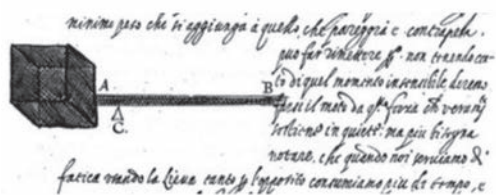 minimo peso che si aggiunga à quello, che pareggia e contrapesa.
può far rimettere pº. non tenendo con-
to di quel momento insensibile
il moto da qsta forza che
sostiene in quiete; ma più bisogna
notare, che quando noi serviamo di
A B
C.
fatica usando la Lieva tanto pº l'opposito consumiamo più di tempo, e